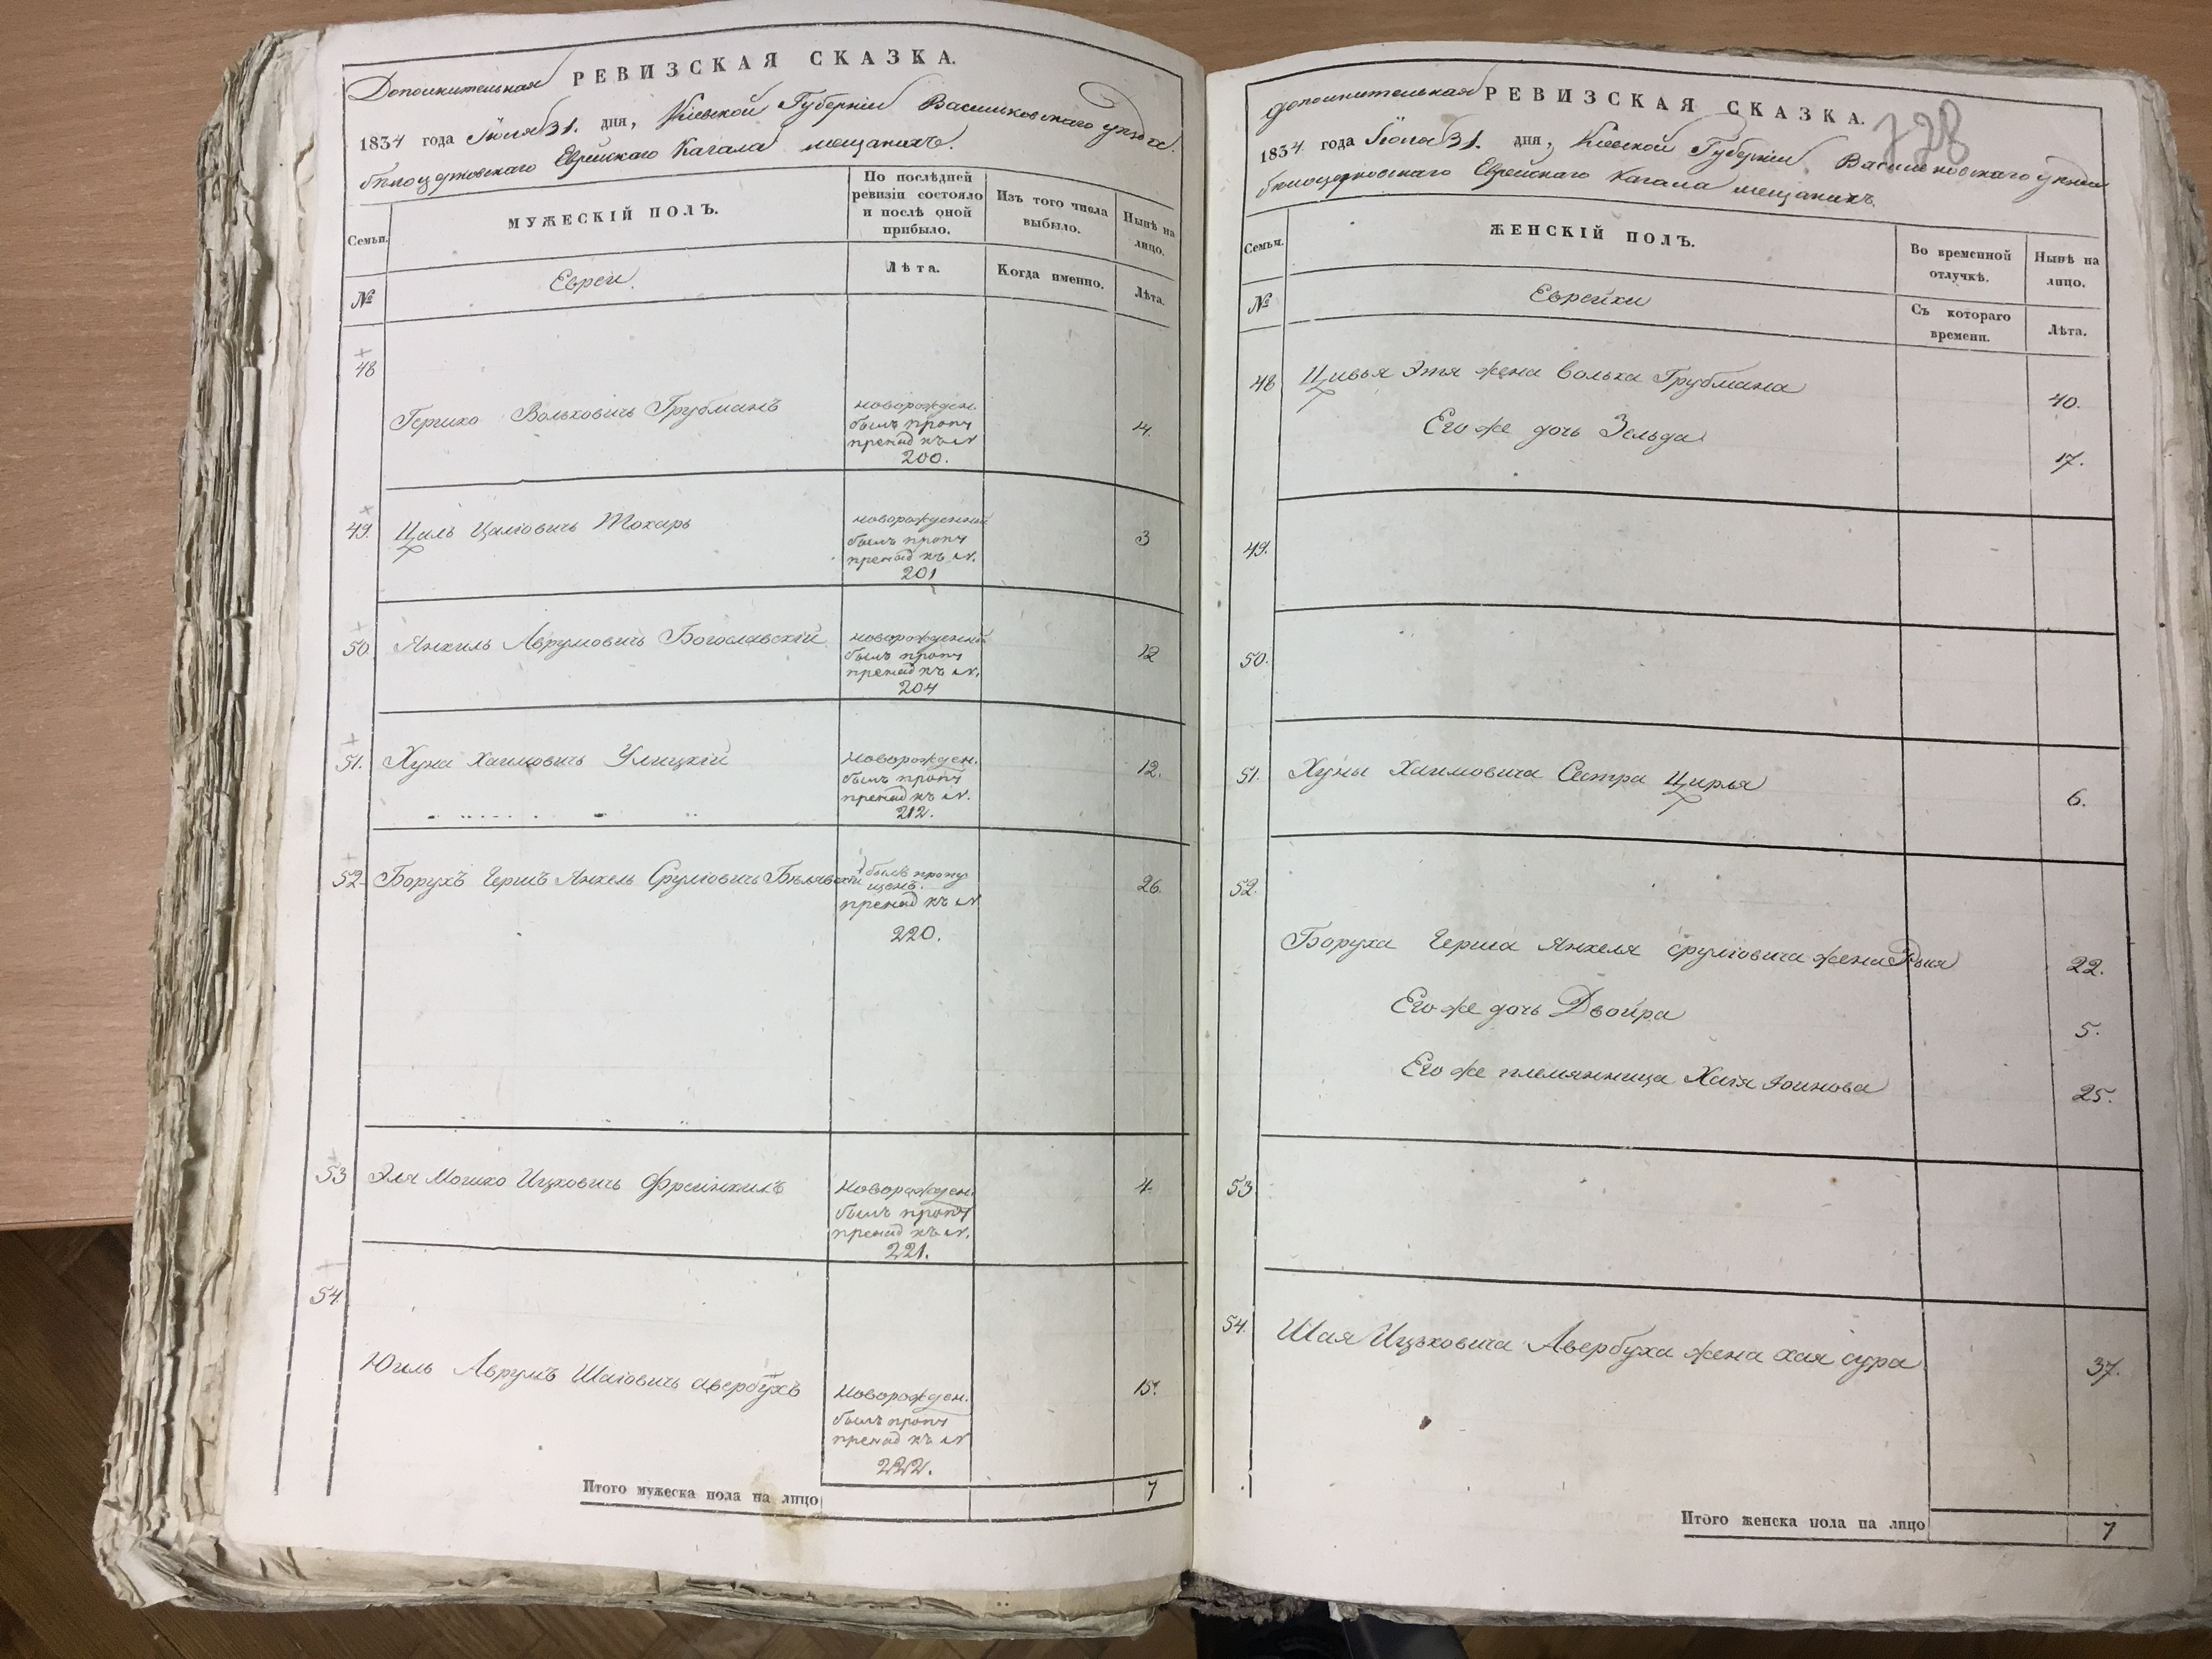 Дополнительная РЕВИЗСКАЯ СКАЗКА.
1834 года Іюля 31. дня, Кіевской Губерніи Васильковскаго уѣзда
бѣлоцерковскаго Еврейскаго Кагала мещанихъ.
Семьи.
МУЖЕСКІЙ ПОЛЪ.
По послѣдней ревизіи состояло и послѣ оной прибыло.
Изъ того числа выбыло.
Нынѣ на лицо.
№
Евреи.
Лѣта.
Когда именно.
Лѣта.
48
Гершко Вольковичь Грубманъ
новорожден.
былъ пропу
пренад къ №
200.
4.
49.
Циль Цалiовичь Токарь
новорожденній
былъ пропу
пренад къ №.
201
3
50
Янкиль Аврумовичь Богославскій
новорожденній
былъ пропу
пренад къ №.
204
12
51.
Хуна Хаимовичь Улицкій
новорожден.
былъ пропу
пренад къ №.
212.
12.
52
Борухъ Гершъ Янкель Сруліовичь Бѣлявскій
былъ пропу
щенъ.
пренад къ №
220.
26.
53
Эля Мошко Ицковичь Френкилъ
Новорожден.
былъ пропу
пренад къ №.
221.
4.
54.
Юиль Аврумъ Шаіовичь авербухъ
Новорожден.
былъ пропу
пренад къ №
222.
15.
Итого мужеска пола на лицо 7
728
дополнительная РЕВИЗСКАЯ СКАЗКА.
1834 года Іюля 31. дня, Кіевской Губерніи Васильковскаго уѣзда
бѣлоцерковскаго Еврейскаго Кагала мещанихъ.
Семьи.
ЖЕНСКІЙ ПОЛЪ.
Во временной отлучкѣ.
Нынѣ на лицо.
№
Еврейки
Съ котораго времени.
Лѣта.
48
Цивья Этя жена Волька Грубмана
40.
Его же дочь Зельда
17.
49.
50.
51.
Хуны Хаимовича Сестра Цирля
6.
52.
Боруха Герша Янкеля Сруліовича жена
22.
Его же дочь Двойра
5.
Его же племянница Хая
25.
53
54.
Шая Ицьковича Авербуха жена хая сура
37.
Итого женска пола на лицо 7